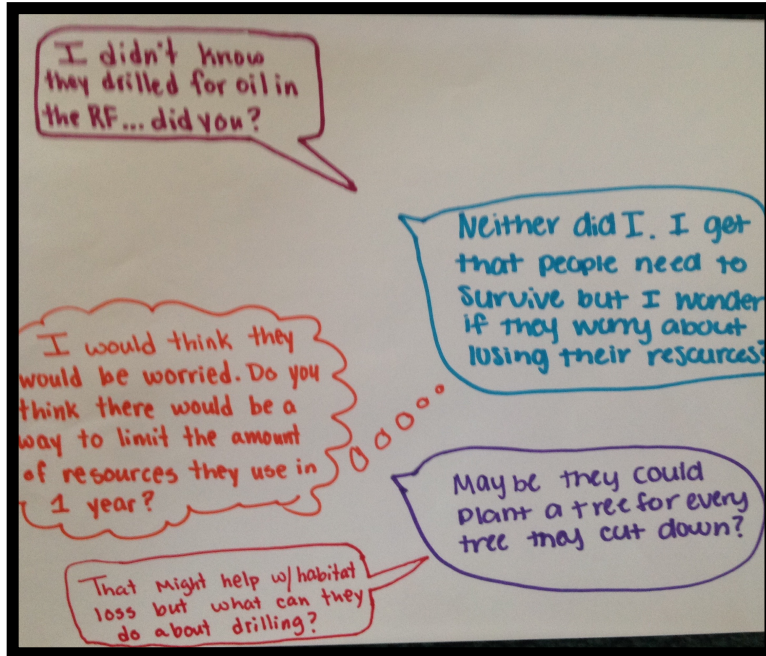 I didn't know
they drilled for oil in
the RF... did you?
Neither did I. I get
that people need to
survive but I wonder
if they worry about
losing their resources?
I would think they
would be worried. Do you
think there would be a
way to limit the amount
of resources they use in
1 year?
Maybe they could
plant a tree for every
tree they cut down?
That might help w/habitat
loss but what can they
do about drilling?